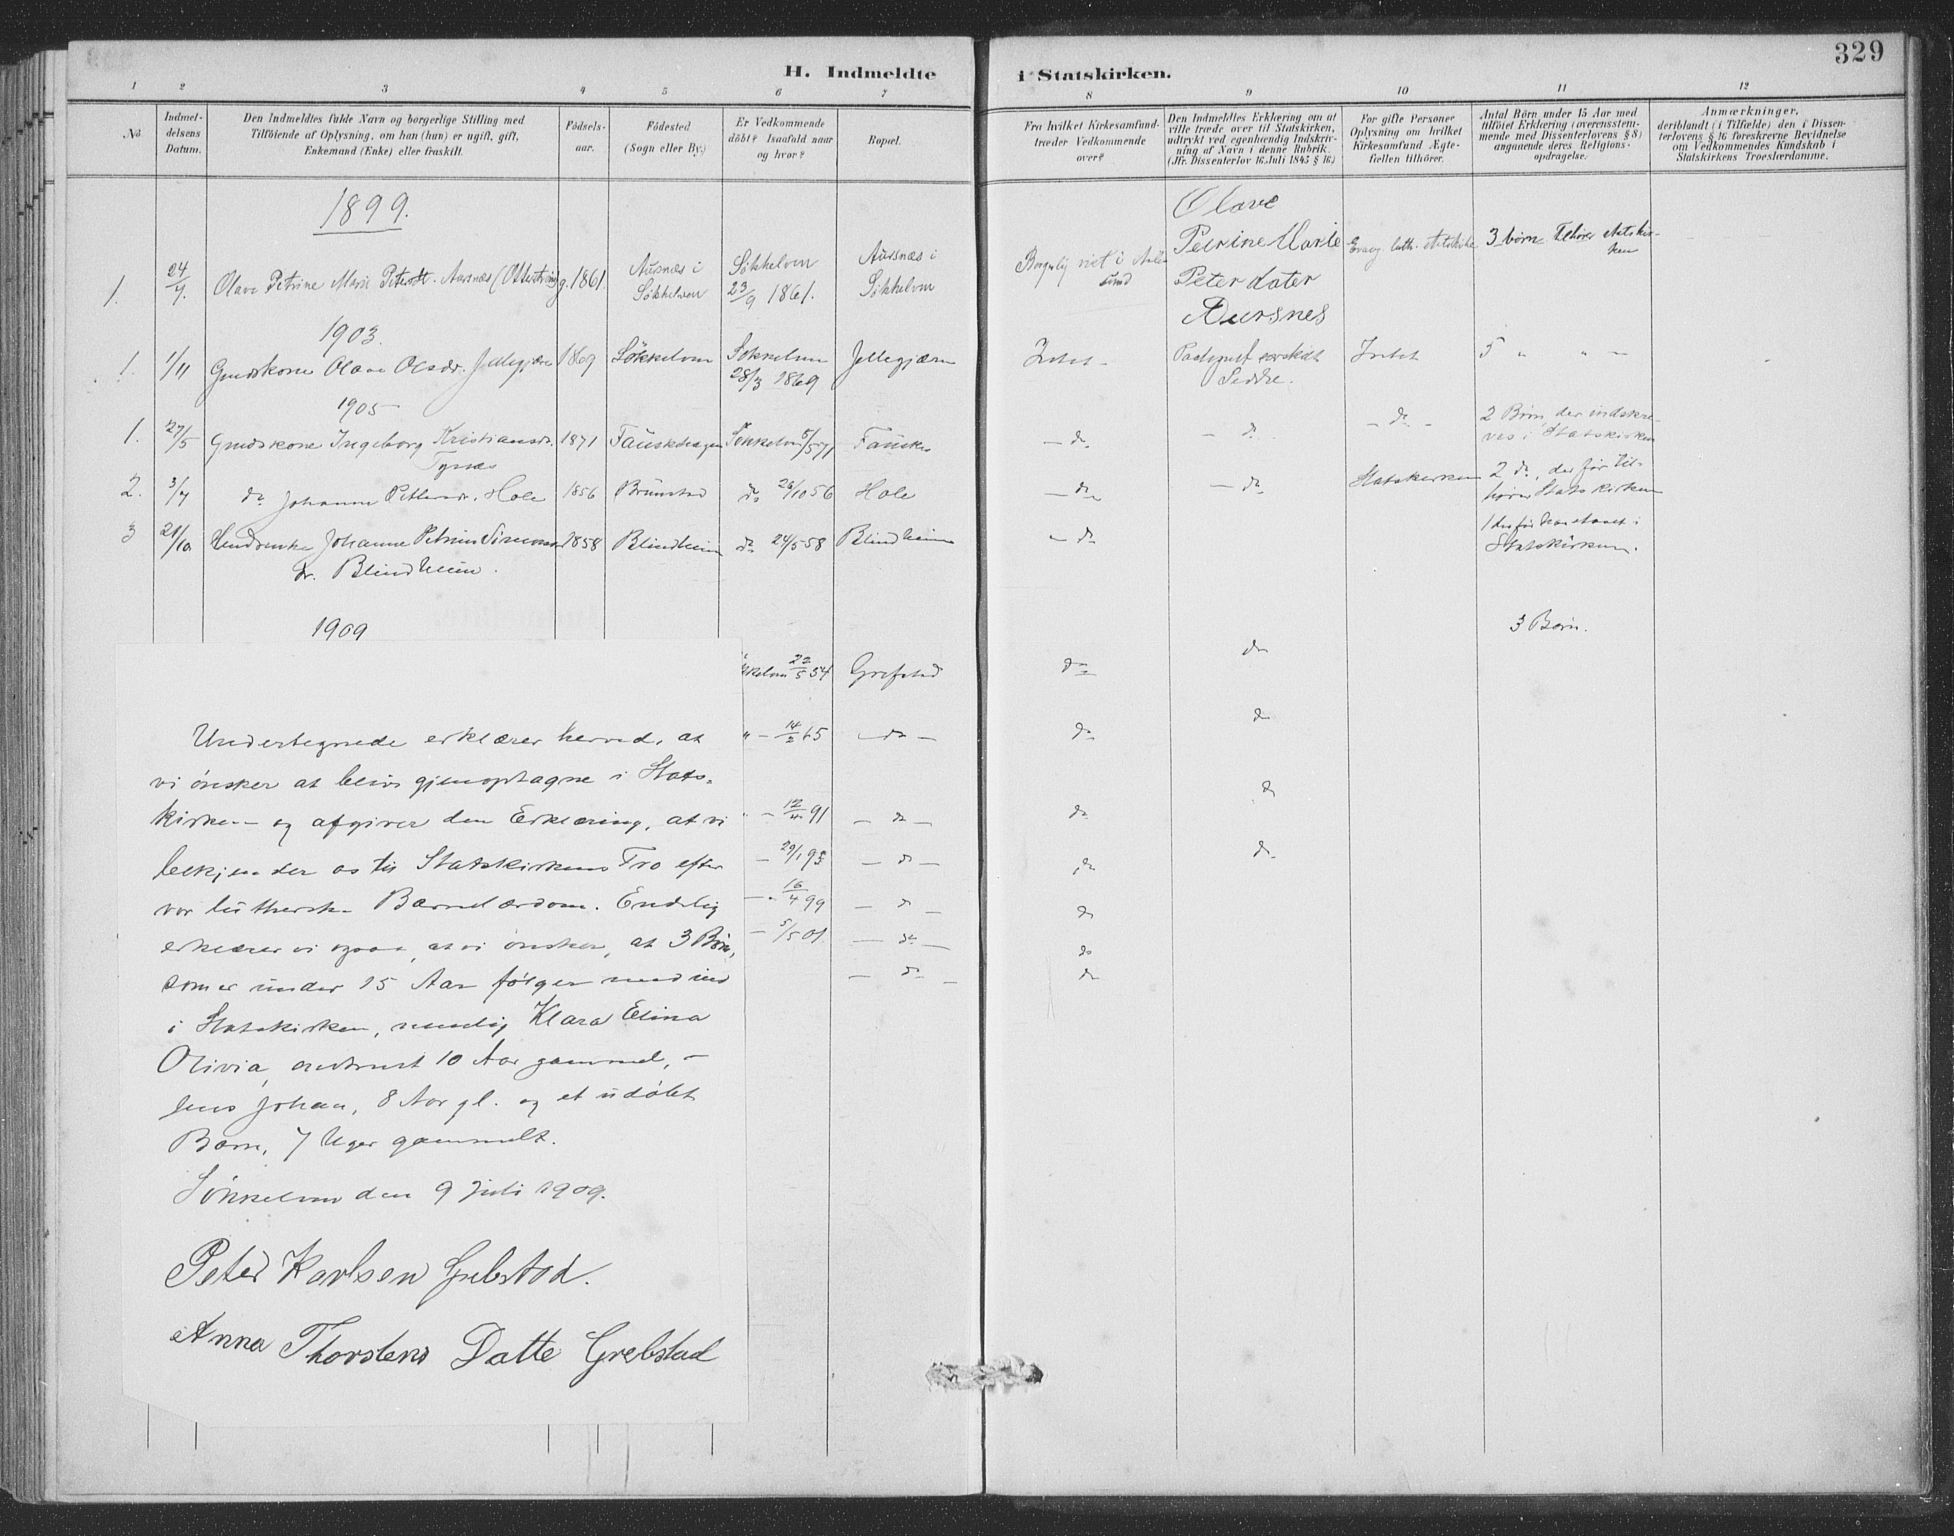 329
H. Indmeldte i Statskirken.
1 2 3 4 5 6 7 8 9 10 11 12
No
Indmel-
delsens
Datum.
Den Indmeldtes fulde Navn og borgerlige Stilling med
Tilföiende af Oplysning, om han (hun) er ugift, gift,
Enkemand (Enke) eller fraskilt.
Födsels-
aar.
Födested
(Sogn eller By.)
Er Vedkommende
döbt? Isaafald naar
og hvor?
Bopæl.
Fra hvilket Kirkesamfund
træder Vedkommende
over?
Den Indmeldtes Erklæring om at
ville træde over til Statskirken,
udtrykt ved egenhændig Indskriv-
ning af Navn i denne Rubrik.
(Jfr. Dissenterlov 16 Juli 1845 § 16.)
For gifte Personer
Oplysning om hvilket
Kirkesamfund Ægte-
fællen tilhörer.
Antal Börn under 15 Aar med
tilföiet Erklæring (overensstem-
mende med Dissenterlovens § 8)
angaaende deres Religions-
opdragelse.
Anmærkninger,
deriblandt (i Tilfælde) den i Dissen-
terlovens § 16 foreskrevne Bevidnelse
om Vedkommendes Kundskab i
Statskirkens Troeslærdomme.
1899.
1. 24/7 Olave Petrine Marie Petersdt. Aarsnæs g. 1861. Aursnæs i Søkkelven Søkkelven 23/9 1861. Aursnæs i Søkkelven
Olave
Petrine Marie
Peter dater
Aursnes
3 børn tilhører
1903.
1. 1/11 Gaardkone Olave Olsdr. Jellegjære 1869 Søkkelven Søkkelven 28/3 1869 Jellegjære Intet Intet 5 " " "
1905
1. 27/5 Gaardkone Ingeborg Kristiansdr. 1871 Søkkelven 5/5 71 - do - do - do -
Tynæs
2 Børn, der indskre-
ves i Statskirken
2. 3/7 do Johanne Pettersdr. Hole 1856 Brunstad do 26/10 56 Hole - do - do Statskirken
2 do, der før til-
hører Statskirken
3 21/10 Johanne Petrine 1858 Blindheim do 24/5 58 Blindheim - do
dr. Blindheim.
1 der før
Statskirken.
1909
3 Børn.
22/5 54 Grebstad do do
" - 14/2 65 - do - do do
- 12/4 91 - do - do do
- 29/1 95 - do - do do
- 16/4 99 - do - do
- 5/5 01 - do - do
- do - do
Undertegnede erklærer herved, at
vi ønsker at blive gjenoptagne i Stats-
kirken og afgiver den Erklæring, at vi
bekjender os til Statskirkens Tro efter
vor lutherske Barnelærdom. Endelig
erklærer vi ogsaa, at vi ønsker, at 3 Børn,
som er under 15 Aar følger med ind
i Statskirken, nemlig Klara Elina
Olivia, omtrent 10 Aar gammel, -
Jens Johan, 8 Aar gl. og et udøbt
Barn, 7 Uger gammelt.
Søkkelven den 9 Juli 1909.
Peter Karlsen Grebstad.
Anna Thorstens Datte Grebstad